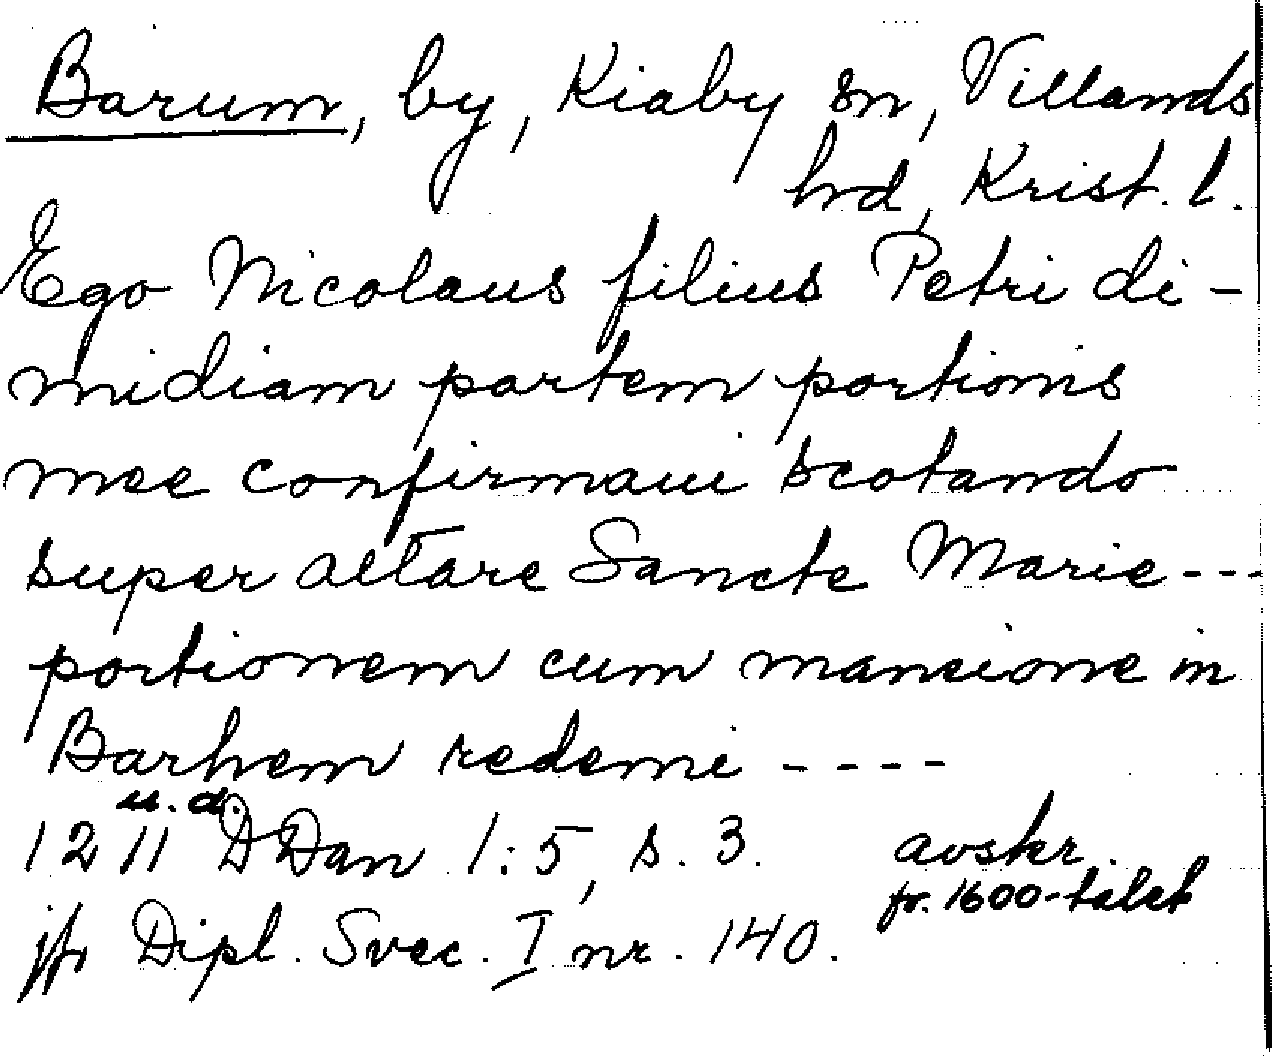 Barum, by, Kiaby sn, Villands
hd, Krist. l.
Ego Nicolaus filius Petri di-
midiam partem portionis
mee confirmaui scotando
super altare Sancte Marie ---
portionem cum mansione in
Barhem redemi ----
u.d.
1211 DDan 1:5, s. 3. avskr.
fr. 1600-talet
jfr Dipl. Svec. I nr. 140.